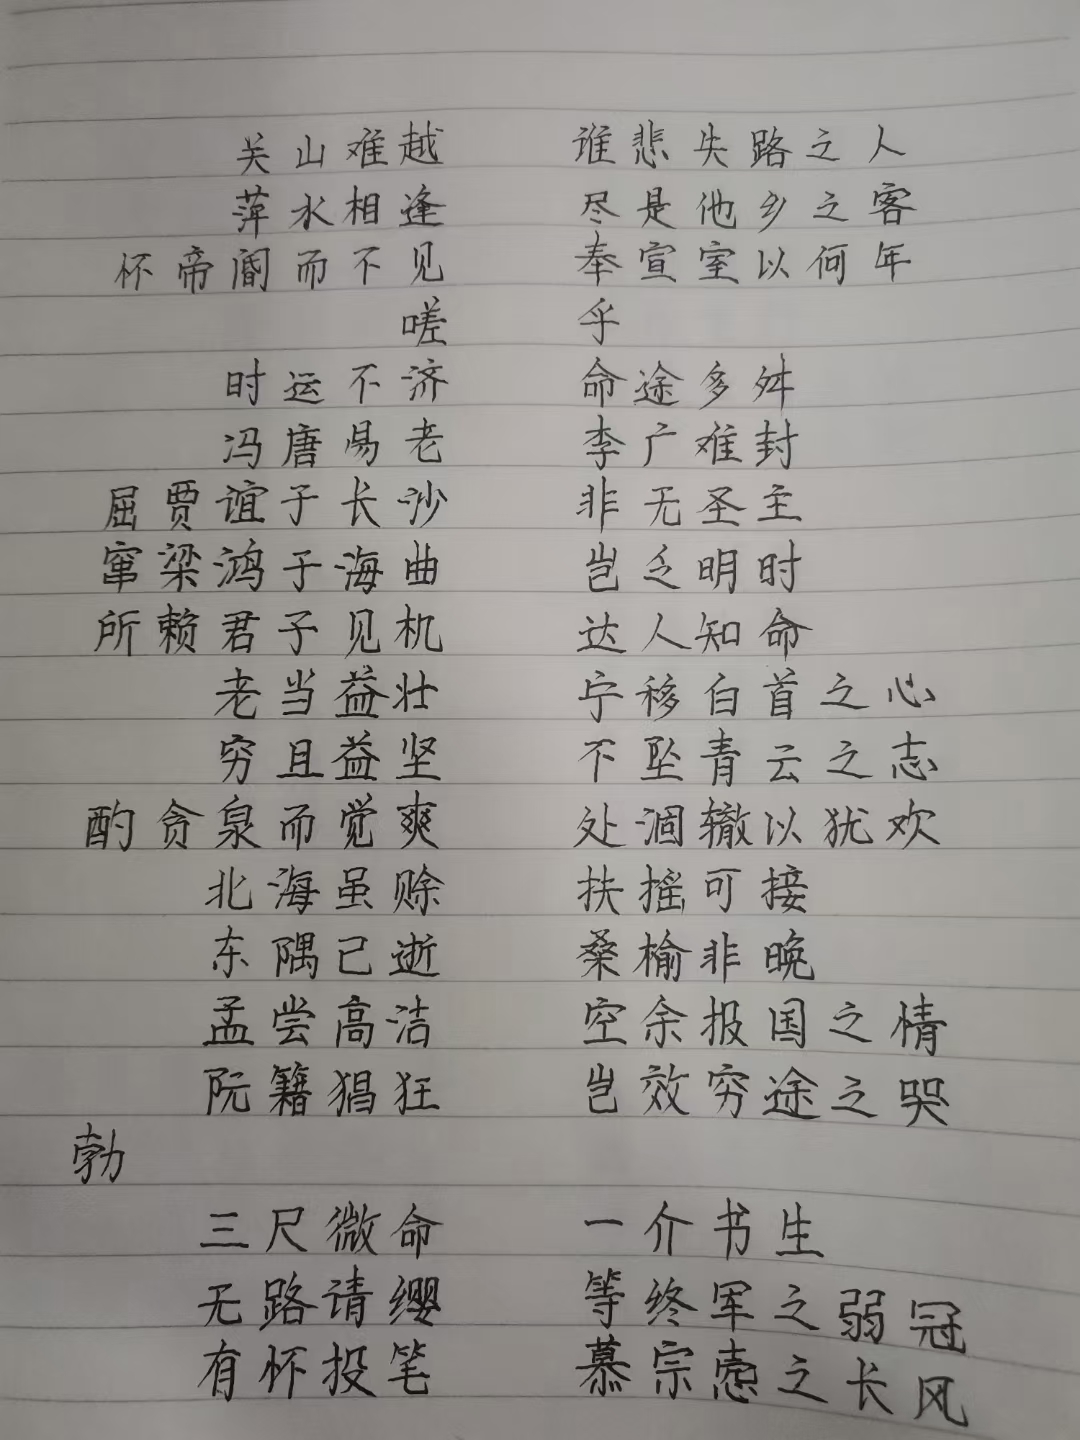 关山难越 谁悲失路之人
萍水相逢 尽是他乡之客
怀帝阍而不见 奉宣室以何年
嗟 乎
时运不济 命途多舛
冯唐易老 李广难封
屈贾谊于长沙 非无圣主
窜梁鸿于海曲 岂乏明时
所赖君子见机 达人知命
老当益壮 宁移白首之心
穷且益坚 不坠青云之志
酌贪泉而觉爽 处涸辙以犹欢
北海虽赊 扶摇可接
东隅已逝 桑榆非晚
孟尝高洁 空余报国之情
阮籍猖狂 岂效穷途之哭
勃
三尺微命 一介书生
无路请缨 等终军之弱冠
有怀投笔 慕宗悫之长风